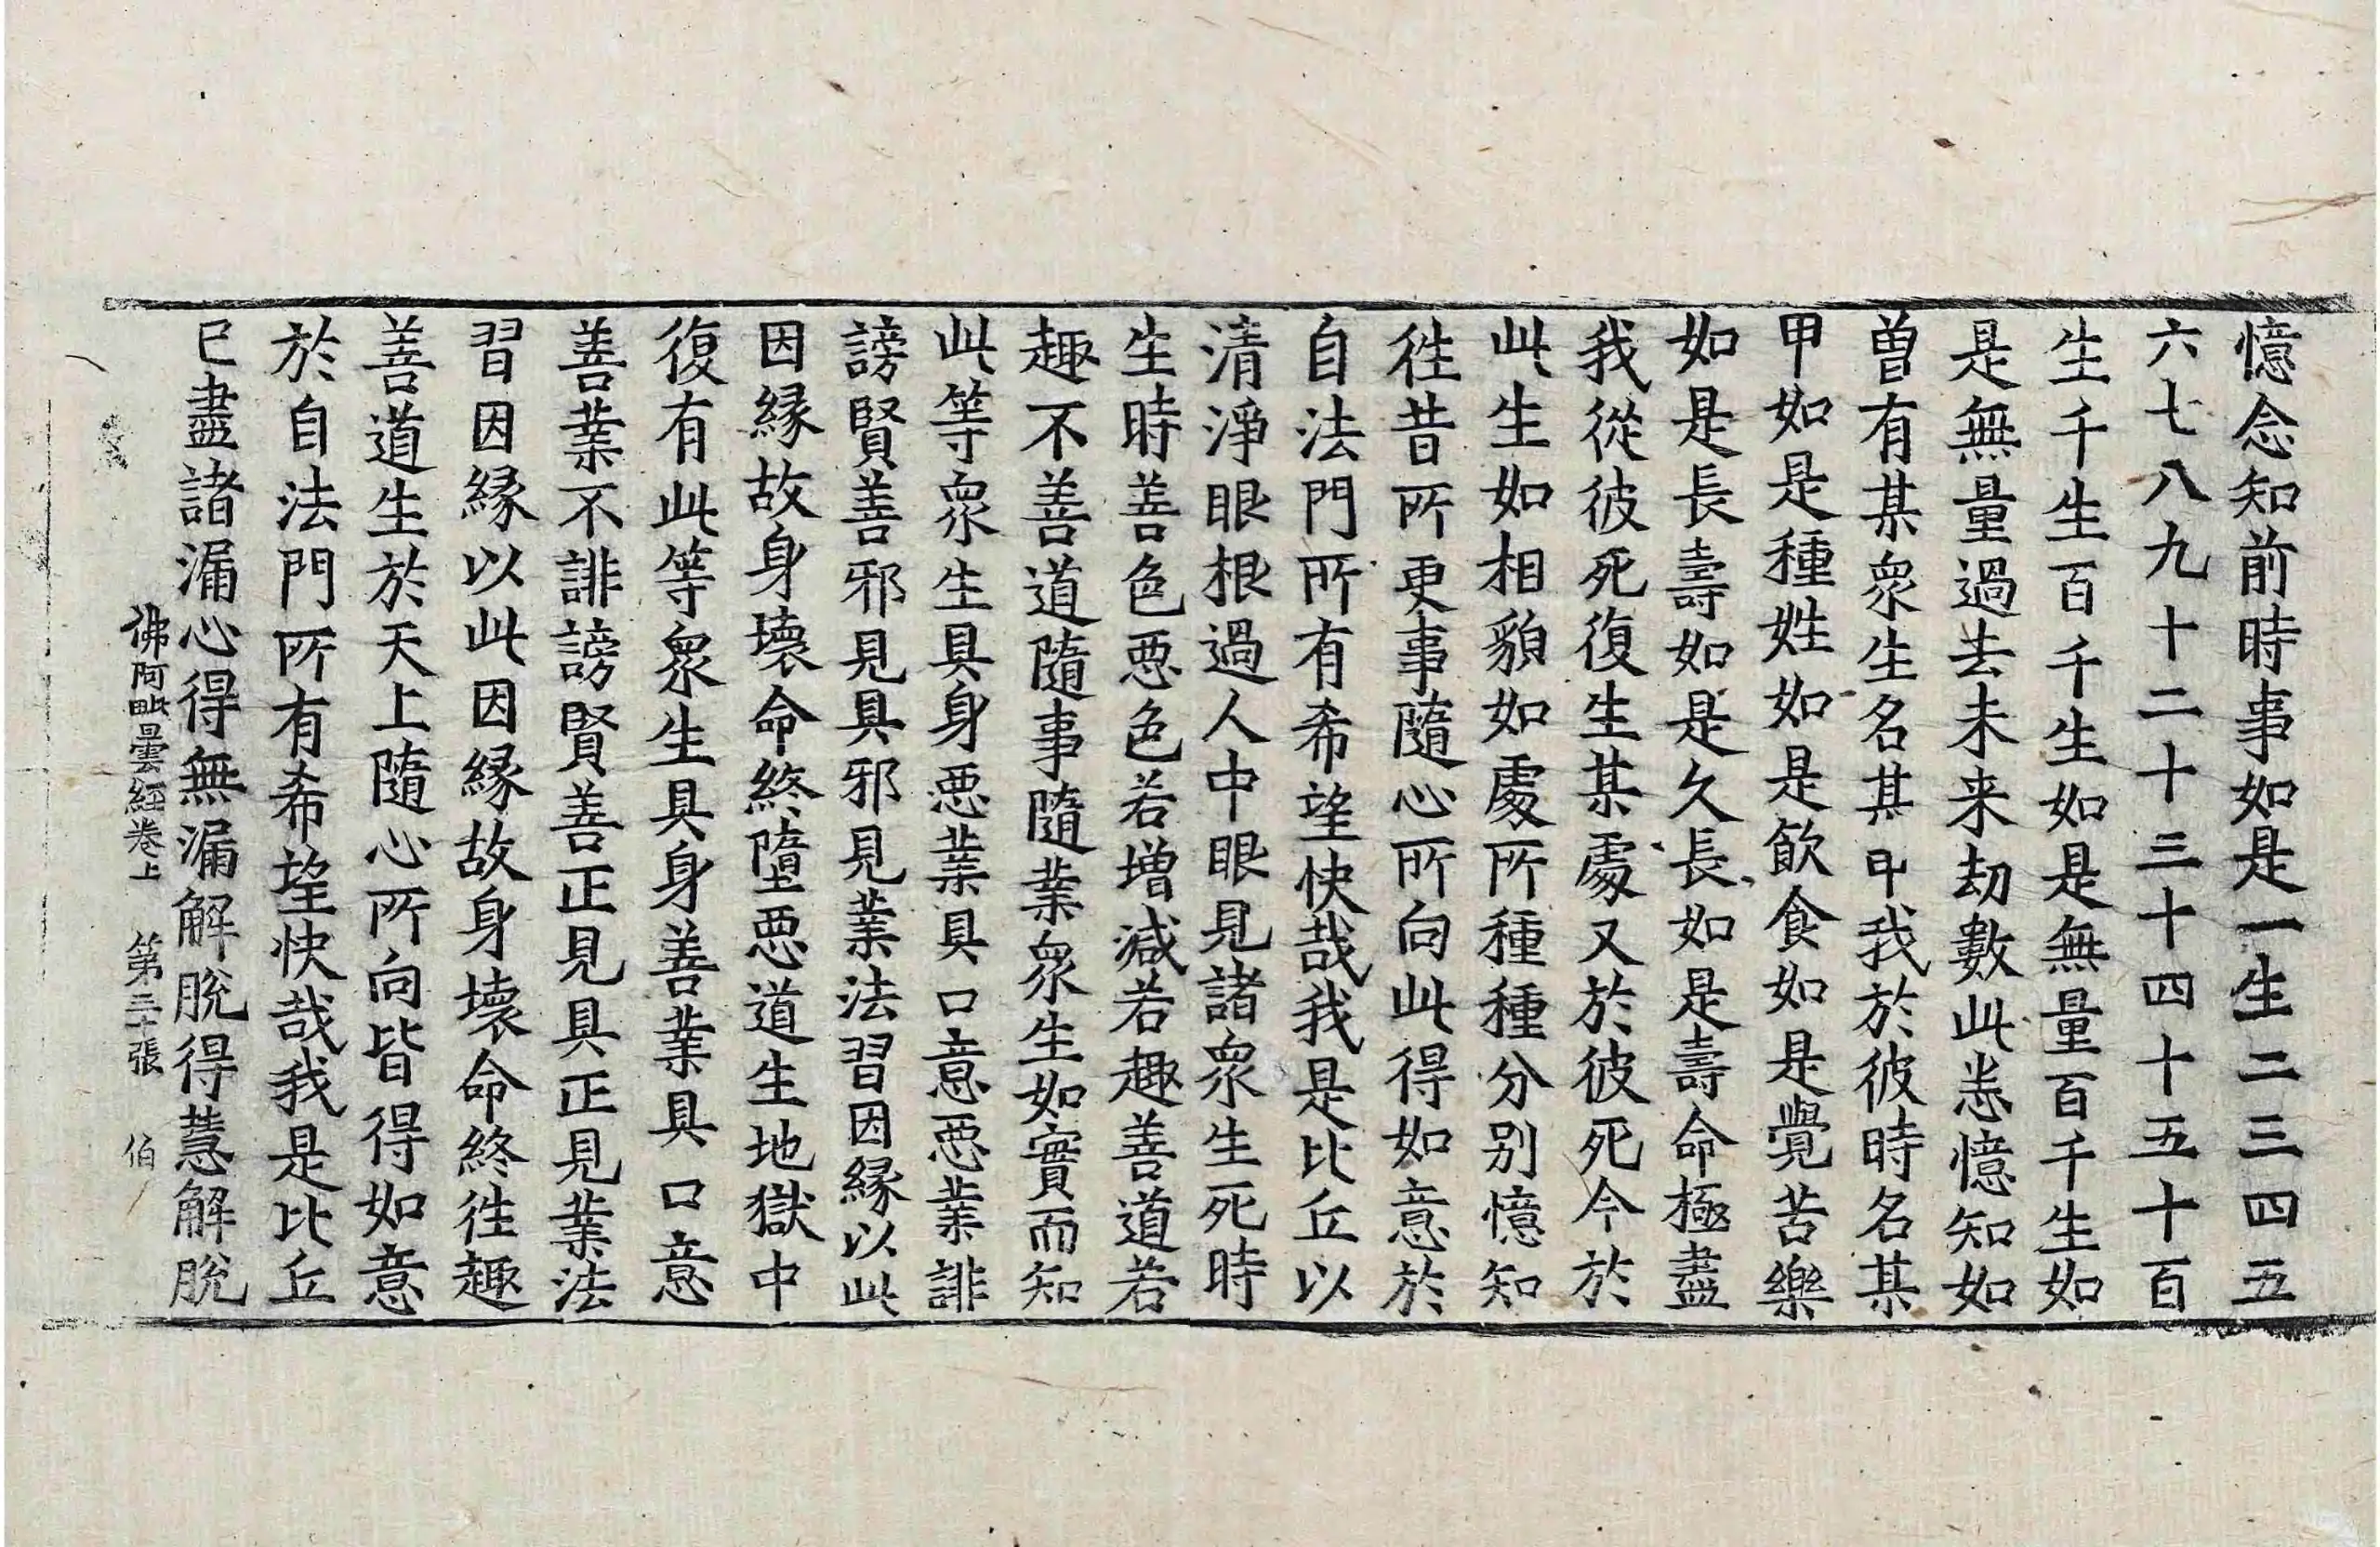 憶念知前時事如是一生二三四五
六七八九十二十三十四十五十百
生千生百千生如是無量百千生如
是無量過去未来劫數此恙憶知如
曽有某衆生名某甲我於彼時名某
甲如是種姓如是飲食如是覺苦樂
如是長壽如是久長如是壽命極盡
我從彼死復生某處又於彼死今於
此生如相貌如處所種種分别憶知
徃昔所更事隨心所向此得如意於
自法門所有希望快哉我是比丘以
清淨眼根過人中眼見諸衆生死時
生時善色悪色若增減若趣善道若
趣不善道隨事隨業衆生如實而知
此等衆生具身悪業具口意悪業誹
謗賢善邪見具邪見業法習因縁以此
因縁故身壞命終墮悪道生地獄中
復有此等衆生具身善業具口意
善業不誹謗賢善正見具正見業法
習因縁以此因縁故身壞命終徃趣
善道生於天上隨心所向皆得如意
於自法門所有希望快哉我是比丘
已盡諸漏心得無漏解脫得慧解脫
佛阿毗曇經卷上 第二十張 伯